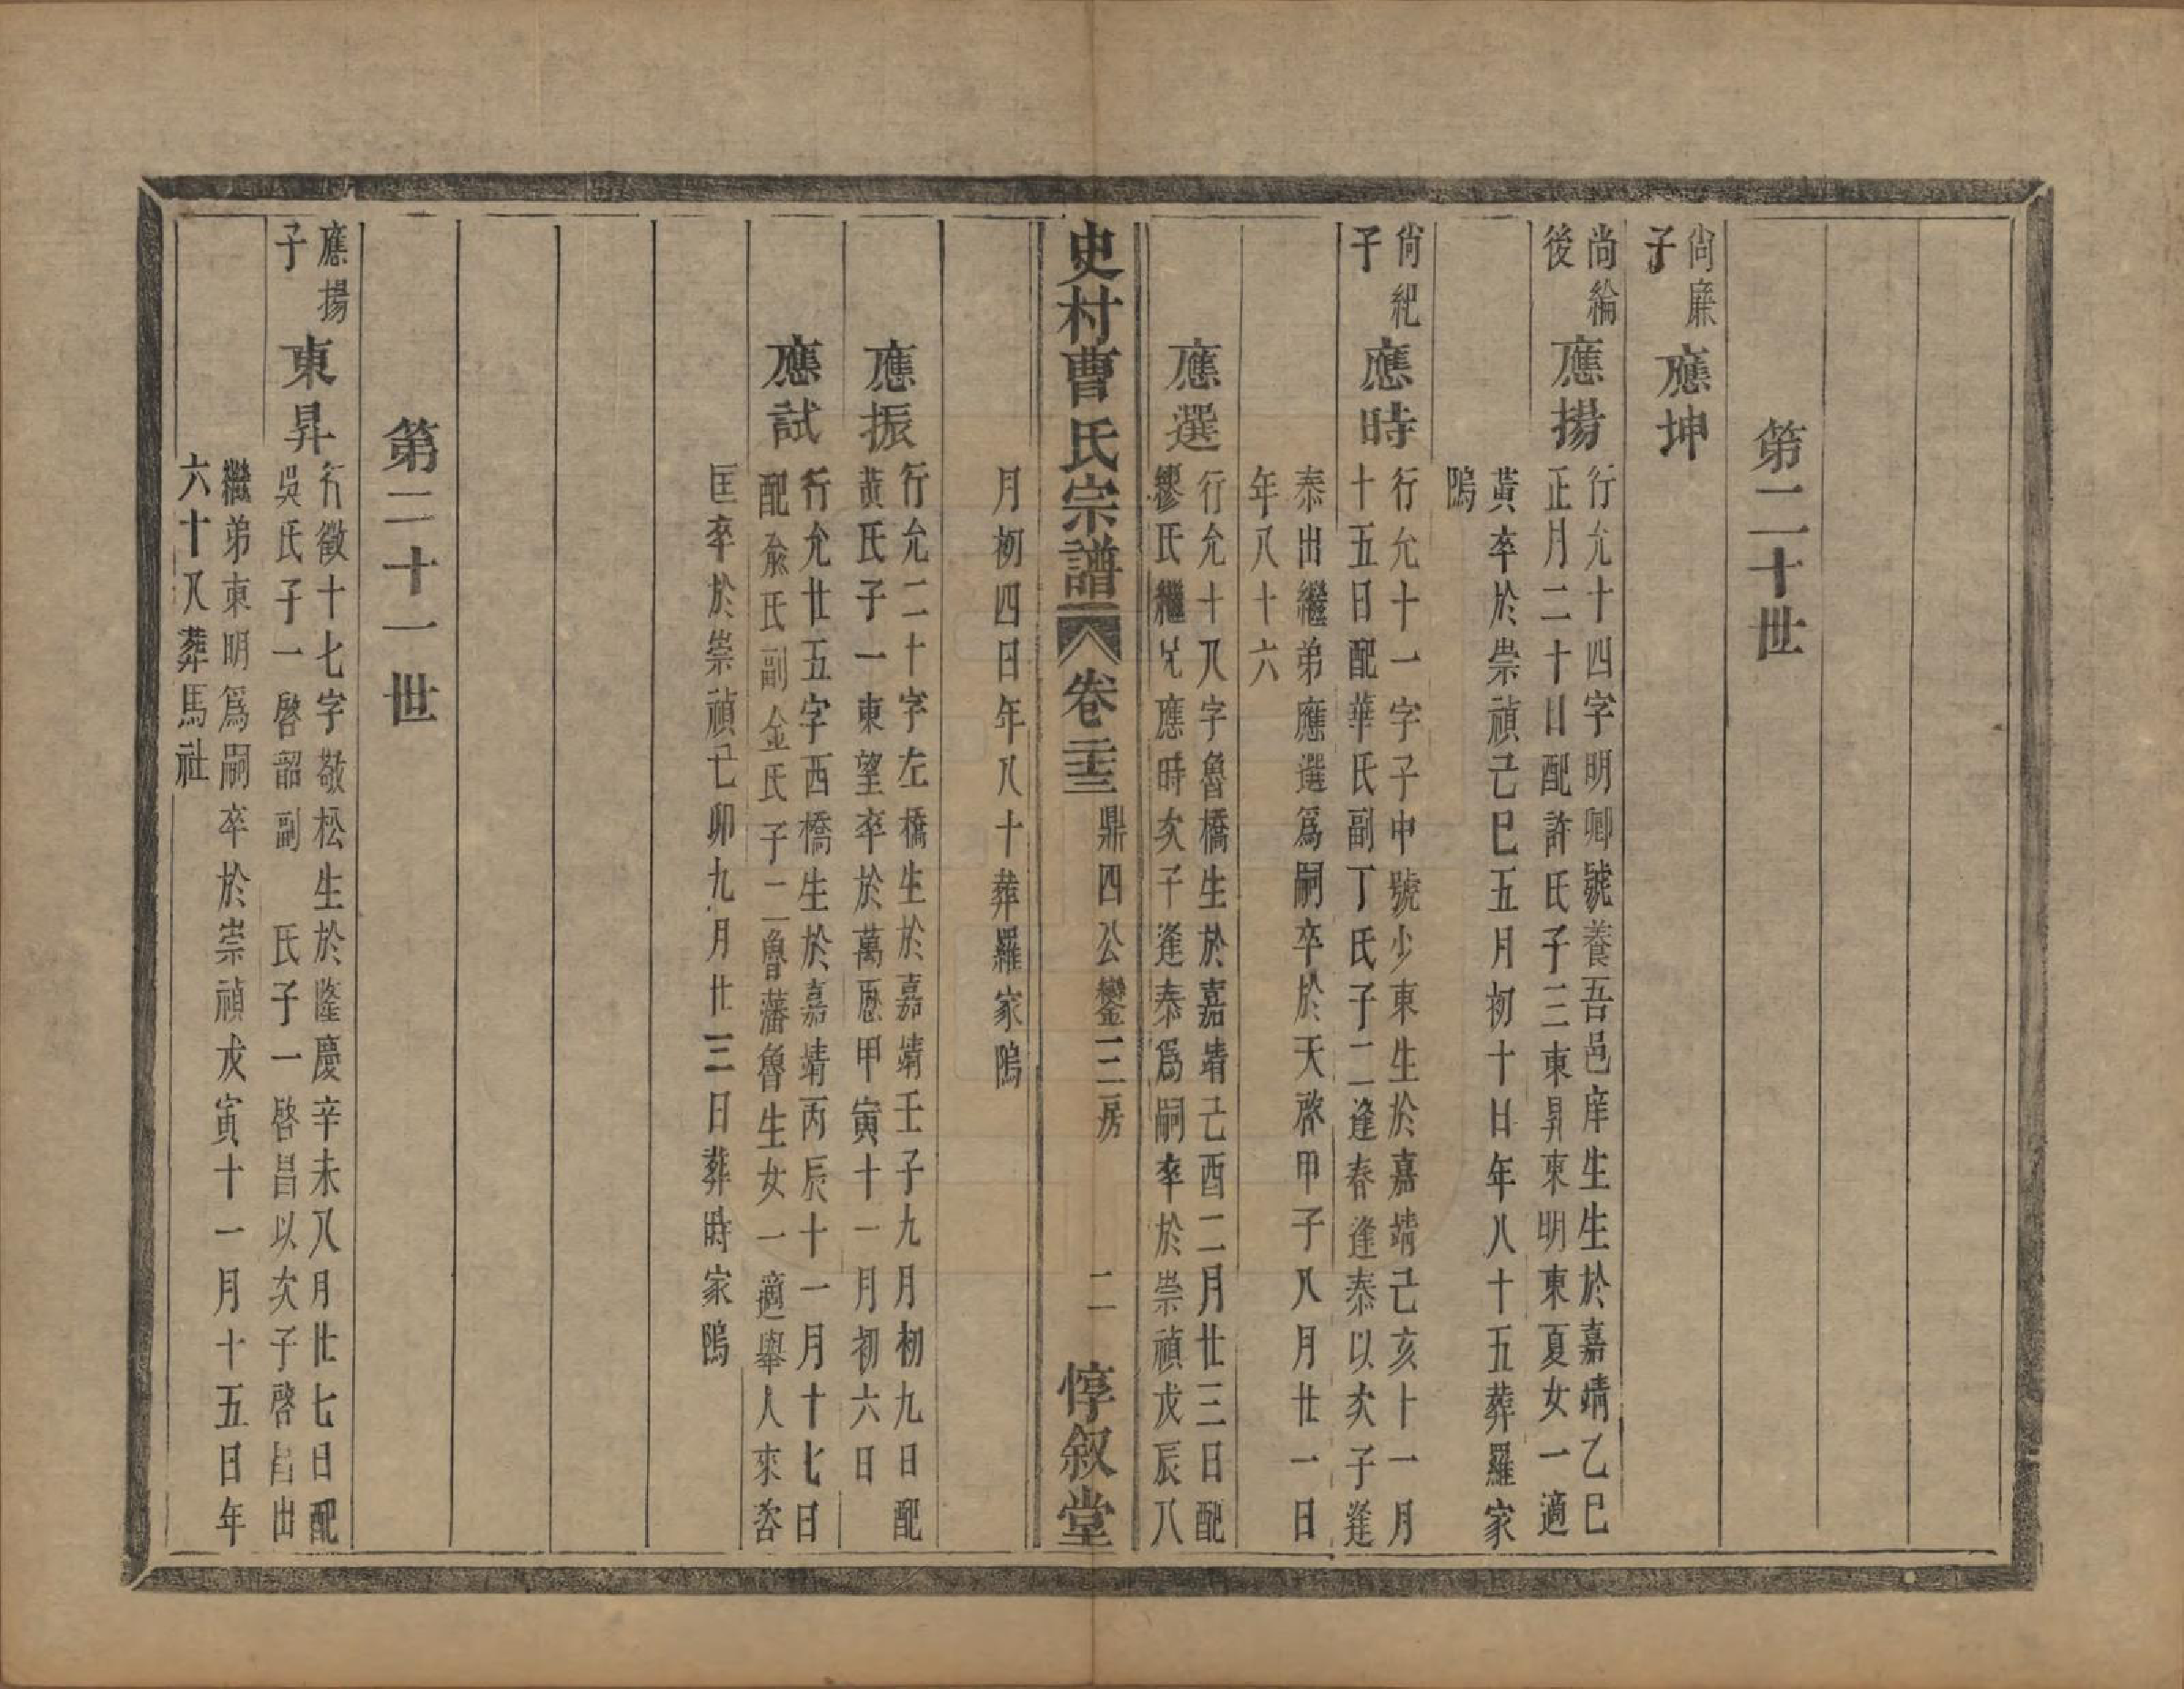 第二十世
尚廉
子
應坤
尚綸
後
應揚
行允十四字明卿號養吾邑庠生生於嘉靖乙巳
正月二十日配許氏子三東昇東明東夏女一適
黃卒於崇禎己巳五月初十日年八十五葬羅家
隖
尙紀
子
應時
行允十一字子中號少東生於嘉靖己亥十一月
十五日配華氏副丁氏子二逢春逢泰以次子逢
泰出繼弟應選爲嗣卒於天啟甲子八月廿一日
年八十六
應選
行允十八字魯橋生於嘉靖己酉二月廿三日配
繆氏繼兄應時次子逢泰爲嗣卒於崇禎戊辰八
史村曹氏宗譜 卷二十三 鼎四公鑾三房 二 惇敘堂
月初四日年八十葬羅家隖
應振
行允二十字左橋生於嘉靖壬子九月初九日配
黃氏子一東望卒於萬厯甲寅十一月初六日
應試
行允廿五字西橋生於嘉靖丙辰十一月十七日
配兪氏副金氏子二魯藩魯生女一適舉人來咨
匡卒於崇禎己卯九月廿三日葬時家隖
第二十一世
應揚
子
東昇
行徵十七字敬松生於隆慶辛未八月廿七日配
吳氏子一啓韶副　氏子一啓昌以次子啓昌出
繼弟東明爲嗣卒於崇禎戊寅十一月十五日年
六十八葬馬社